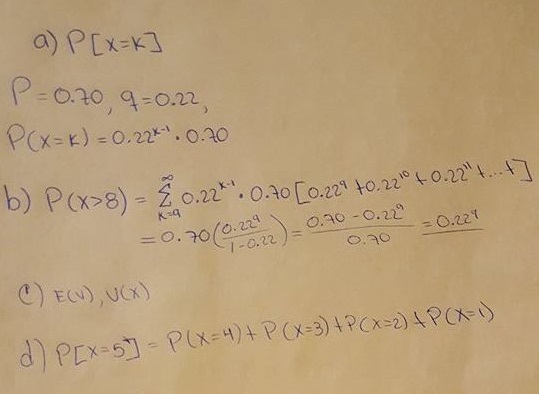 a) P[X=K]
P=0.70, q=0.22,
P(X=K) = 0.22ᴷ⁻¹ · 0.70
b) P(X>8) = ∞ Σ K=9 0.22ᴷ⁻¹ · 0.70 [0.22⁹ + 0.22¹⁰ + 0.22¹¹ + ... +]
= 0.70(0.22⁹/1-0.22) = 0.70 - 0.22⁹/0.70 = 0.22⁹
c) E(V), V(X)
d) P[X=5] = P(X=4) + P(X=3) + P(X=2) + P(X=1)